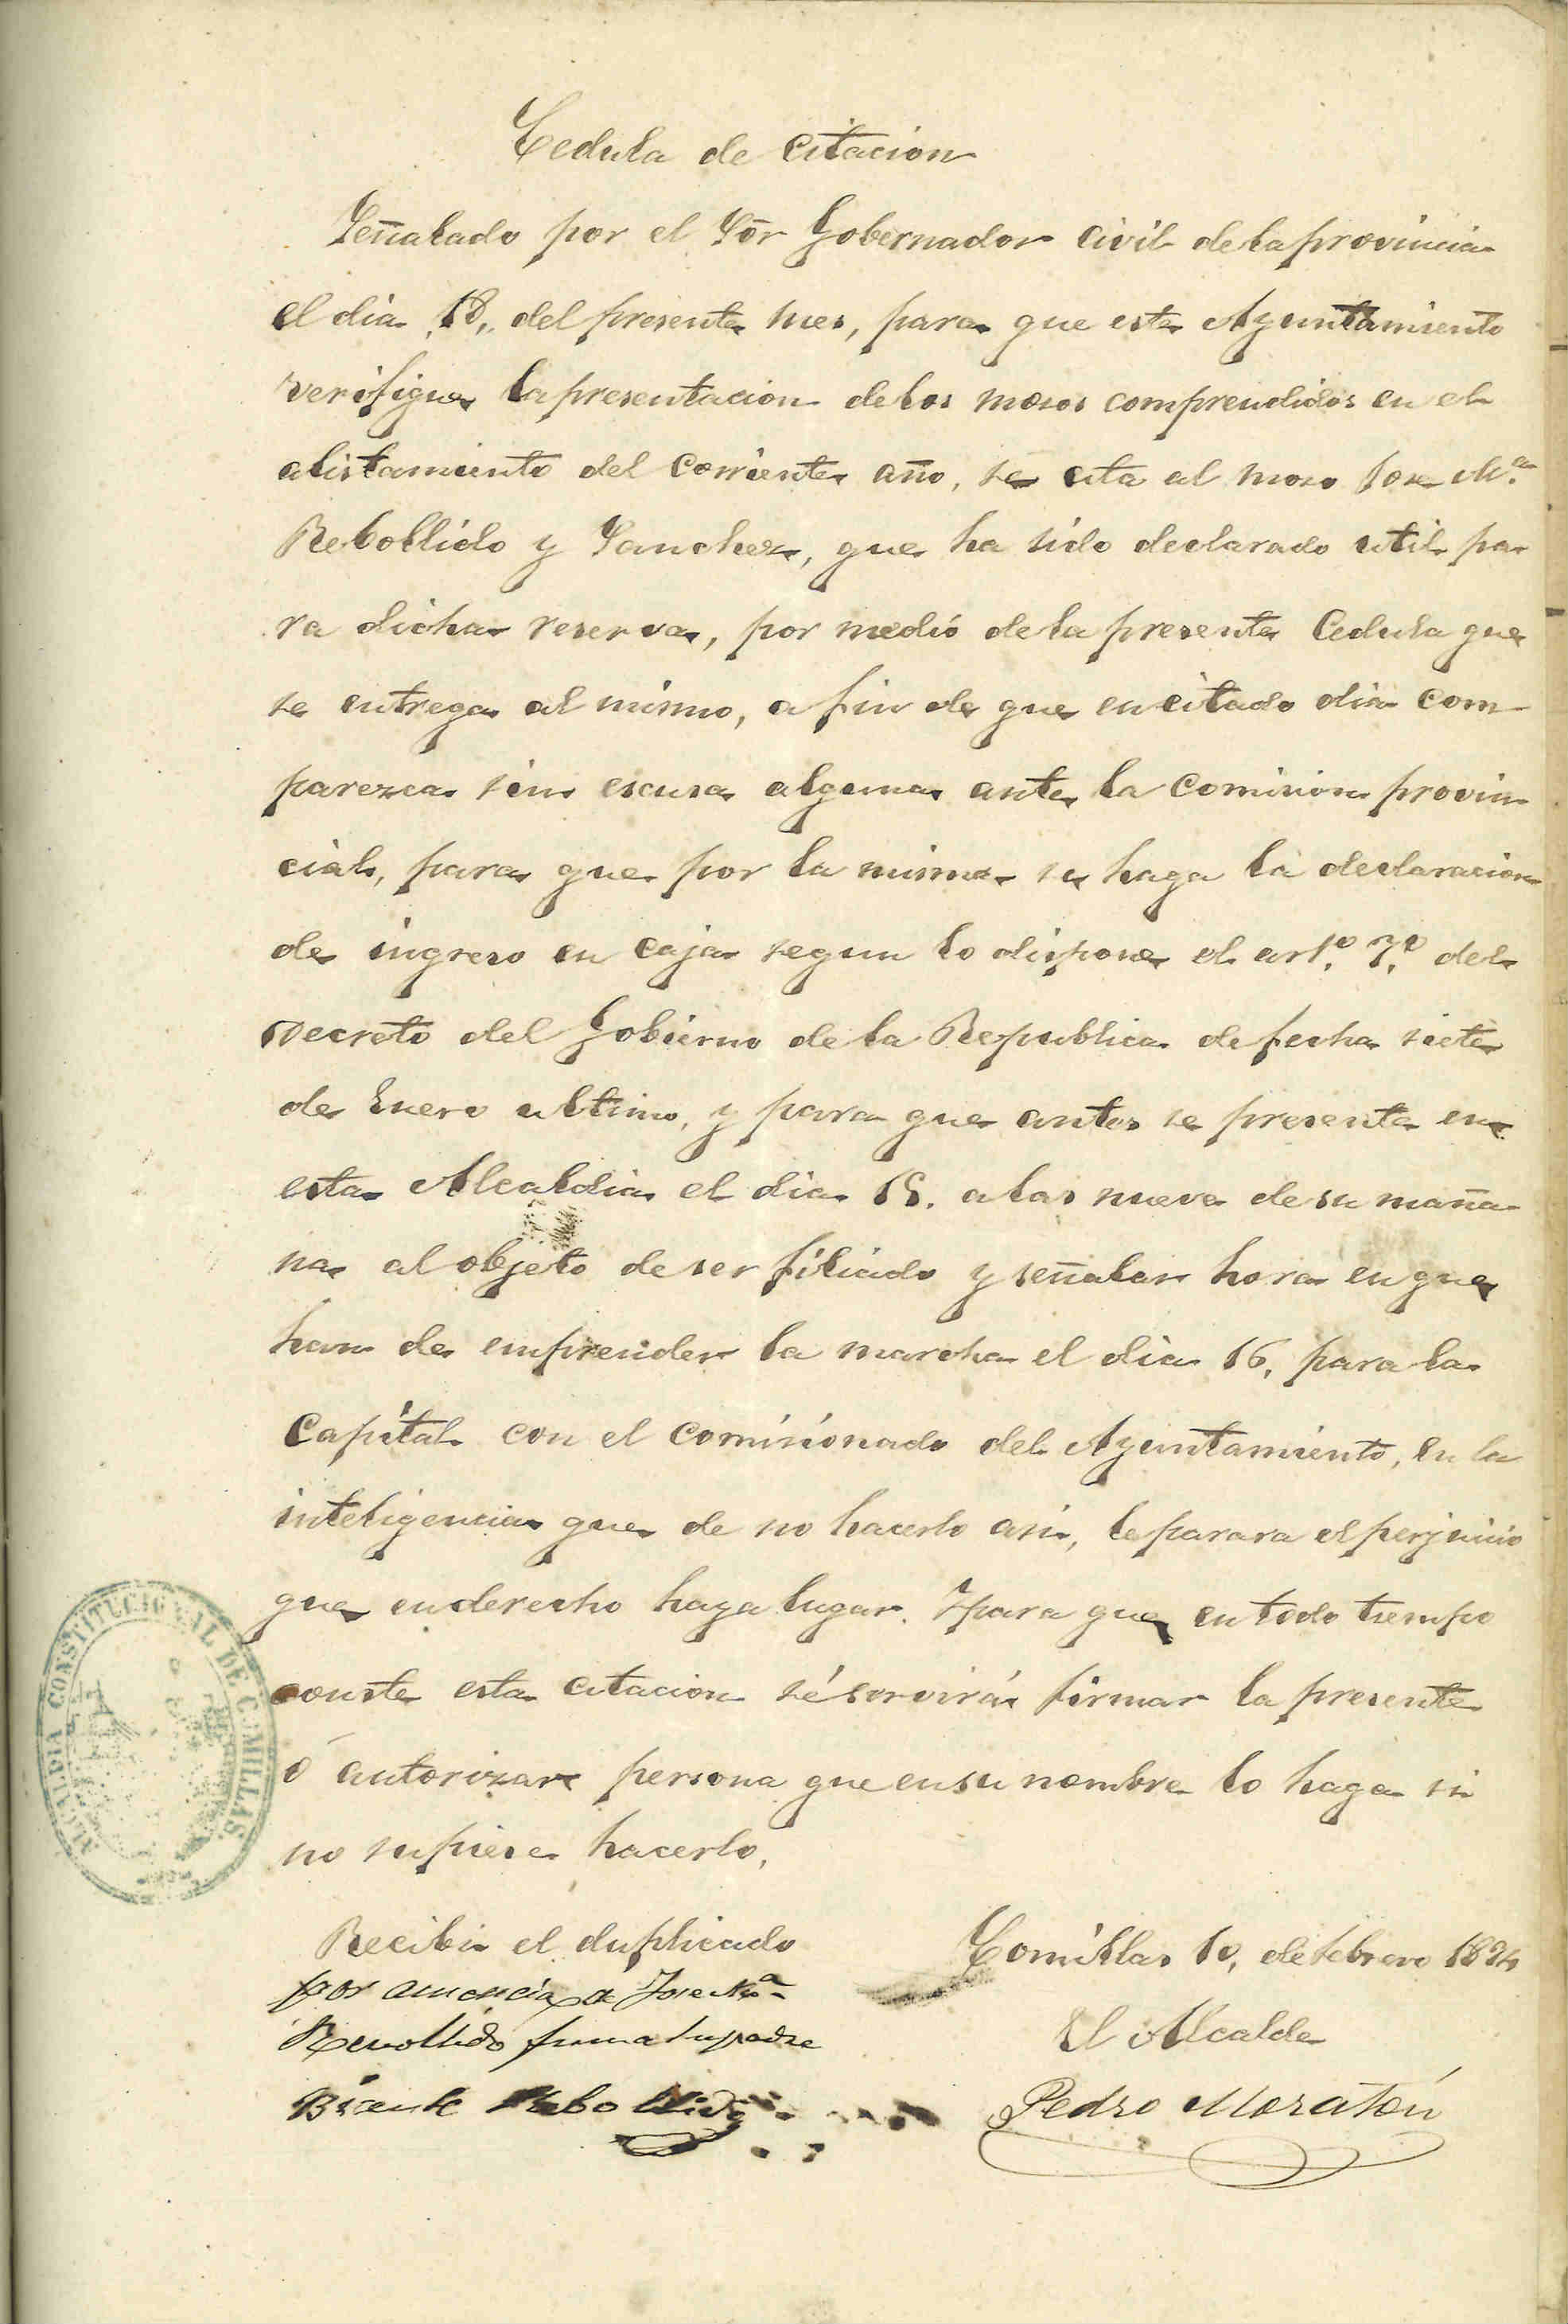 Cedula de citacion
Señalado por el Sõr Gobernador civil de la provincia
el dia 18, del presente mes, para que este Ayuntamiento
verifique la presentacion de los mosos comprendidos en el
alistamiento del corriente año, se cita al moso Jose M.ª
Rebollido y Sanchez, que ha sido declarado util pa
ra dicha reserva, por medio de la presente Cedula que
se entrega al mismo, a fin de que en citado dia com
parezca sin escusa alguna ante la Comision provin
cial, para que por la misma se haga la declaracion
de ingreso en caja segun lo dispone el art.º 7.º del
Decreto del Gobierno de la Republica de fecha siete
de Enero ultimo, y para que antes se presente en
esta Alcaldia el dia 15. a las nueve de su maña
na al objeto de ser filiado y señalar hora en que
han de emprender la marcha el dia 16, para la
Capital con el comisionado del Ayuntamiento, en la
inteligencia que de no hacerlo asi, le parara el perjuicio
que en derecho haga lugar. Y para que en todo tiempo
conste esta citacion sé servirá firmar la presente
ó autorizar persona que en su nombre lo haga si
no supiese hacerlo,
ALCALDIA CONSTITUCIONAL DE COMILLAS.
Recibi el duplicado
por ausencia de Jose M.ª
Revollido firma su padre
Bicente Rebollido
Comillas 10, de febrero 1874
El Alcalde
Pedro Moratón